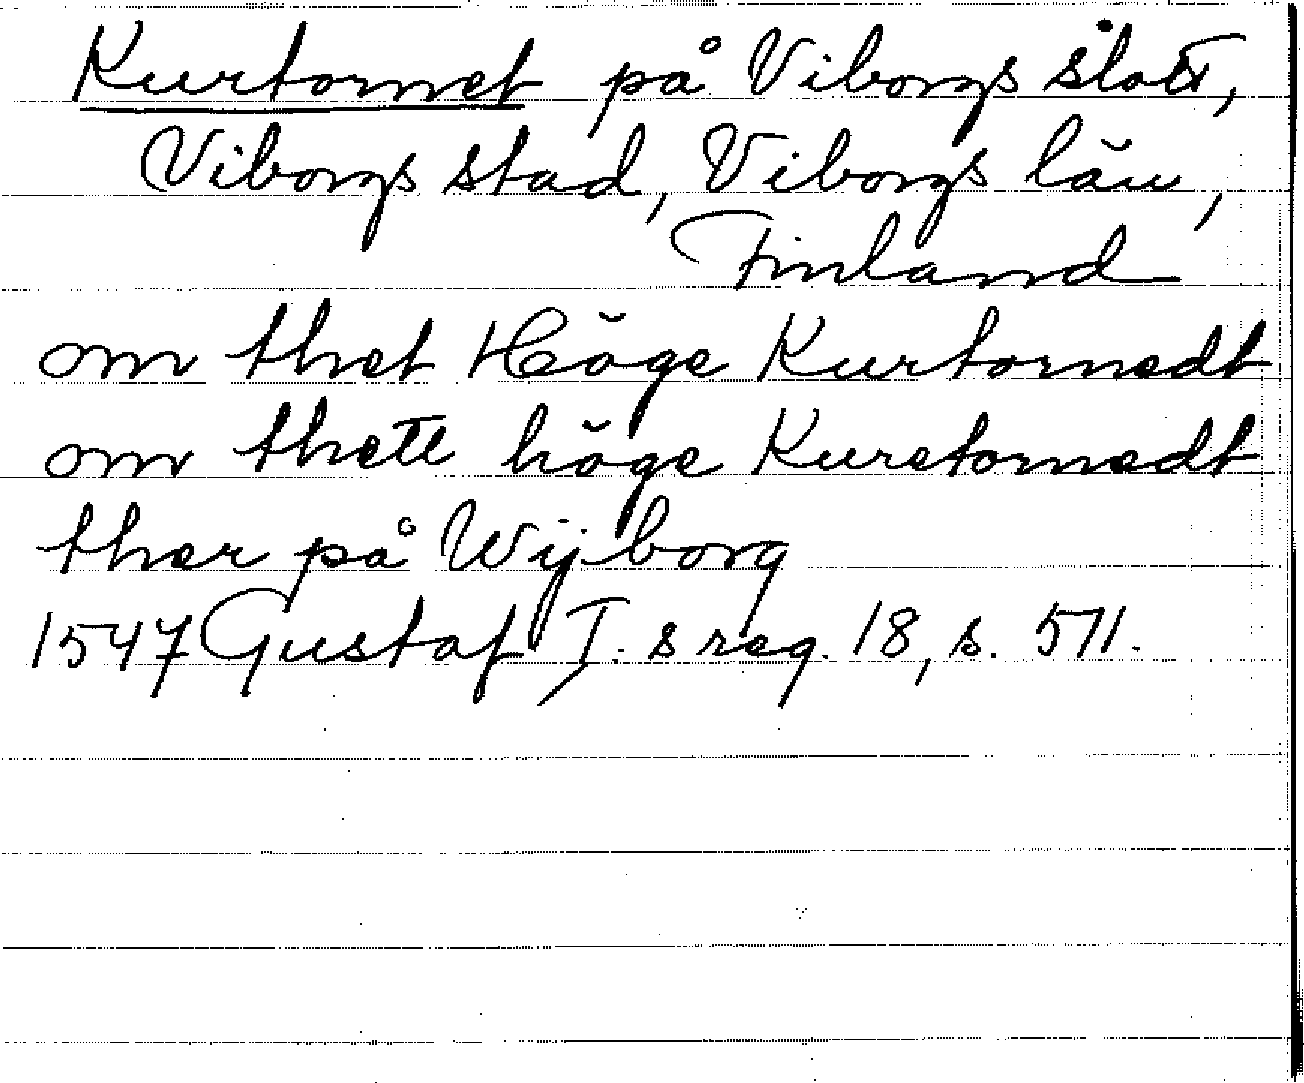 Kurtornet på Viborgs slott,
Viborgs stad, Viborgs län,
Finland
om thet Höge Kurtornedt
om thett höge Kuretornedt
ther på Wijborg
1547 Gustaf I. s reg. 18, s. 571.